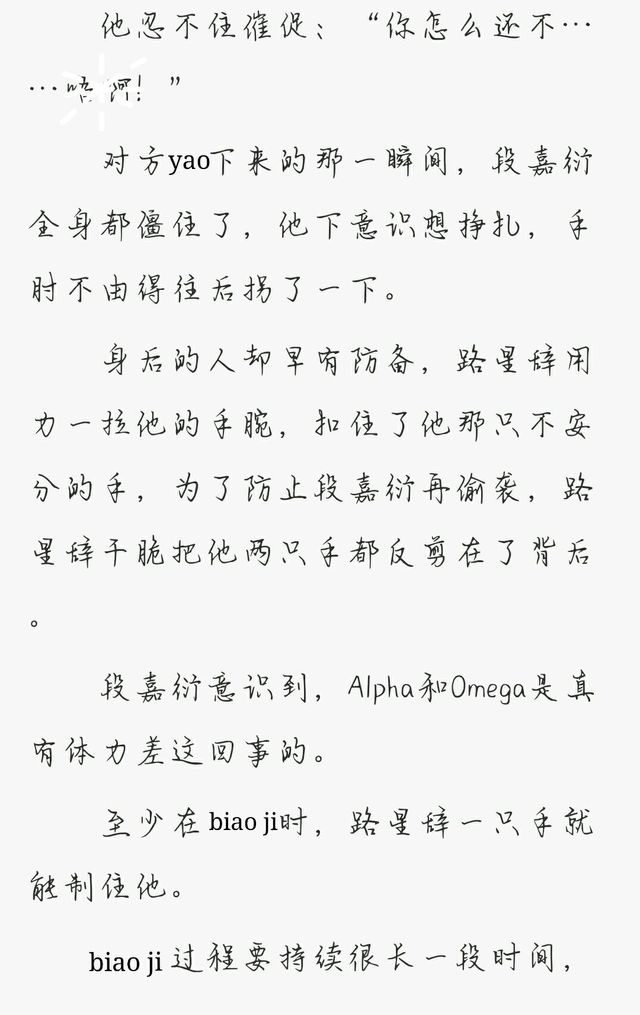 他忍不住催促：“你怎么还不…
…唔啊！”
对方yao下来的那一瞬间，段嘉衍
全身都僵住了，他下意识想挣扎，手
肘不由得往后拐了一下。
身后的人却早有防备，路星辞用
力一拉他的手腕，扣住了他那只不安
分的手，为了防止段嘉衍再偷袭，路
星辞干脆把他两只手都反剪在了背后
。
段嘉衍意识到，Alpha和Omega是真
有体力差这回事的。
至少在biao ji时，路星辞一只手就
能制住他。
biao ji 过程要持续很长一段时间，